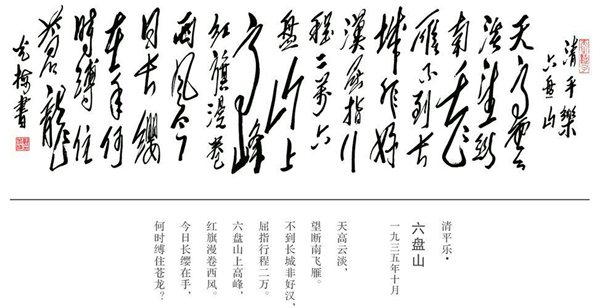 清平樂
六盘山
天高雲
淡望断
南飞
雁不到长
城非好
漢屈指行
程二萬六
盘山上
高峰
红旗漫卷
西风今
日长缨
在手何
时缚住
苍龍
书
清平乐·
六盘山
一九三五年十月
天高云淡，
望断南飞雁。
不到长城非好汉，
屈指行程二万。
六盘山上高峰，
红旗漫卷西风。
今日长缨在手，
何时缚住苍龙？